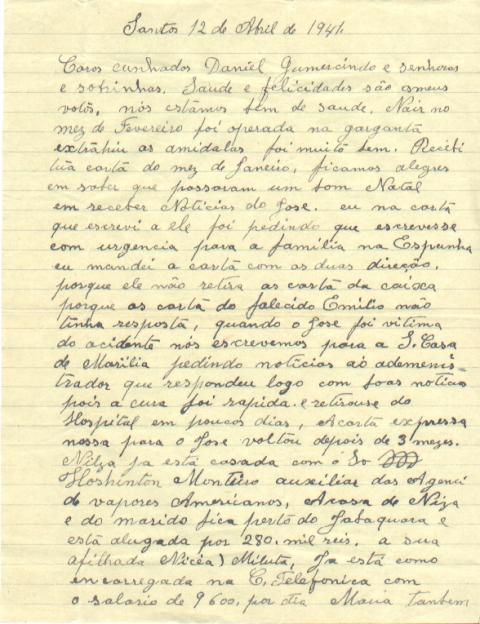 Santos 12 de Abril de 1941.
Caros cunhados Daniel Gumercindo e senhoras
e sobrinhas. Saude e felicidades são omeus
votos, nós estâmos bem de saude. Nair no
mez de Fevereiro foi operada na garganta
extrahiu as amidalas foi muito bem. Recibi
tua carta do mez de Janeiro, ficamos alegres
em saber que passaram um bom Natal
em receber Noticias do Jose. eu na carta
que escrevi a ele foi pedindo que escrevesse
com urgencia para a familia na Espanha
eu mandei a carta com as duas direção.
porque ele não retira as carta da caixa
porque as carta do falecido Emilio não
tinha resposta, quando o Jose foi vitima
do acidente nós escrevemos para a S. Casa
de Marilia pedindo noticias aó ademenis-
trador que respondeu logo com boas noticias
pois a cura foi rapida. e retirouse do
Hospital em poucos dias, Acarta expressa
nossa para o Jose voltou depois de 3 mezes.
Nilza Ja está casada com ó So
Hoshinton Monteiro auxiliar das Agenci
de vapores Americanos, Acasa de Niza
e do marido fica perto do Jabaquara e
está alugada por 280. mil reis. a sua
afilhada Nicéa) Miluta, Ja está como
encarregada na C. Telefonica com
o salario de 9600. por dia Maria tambem